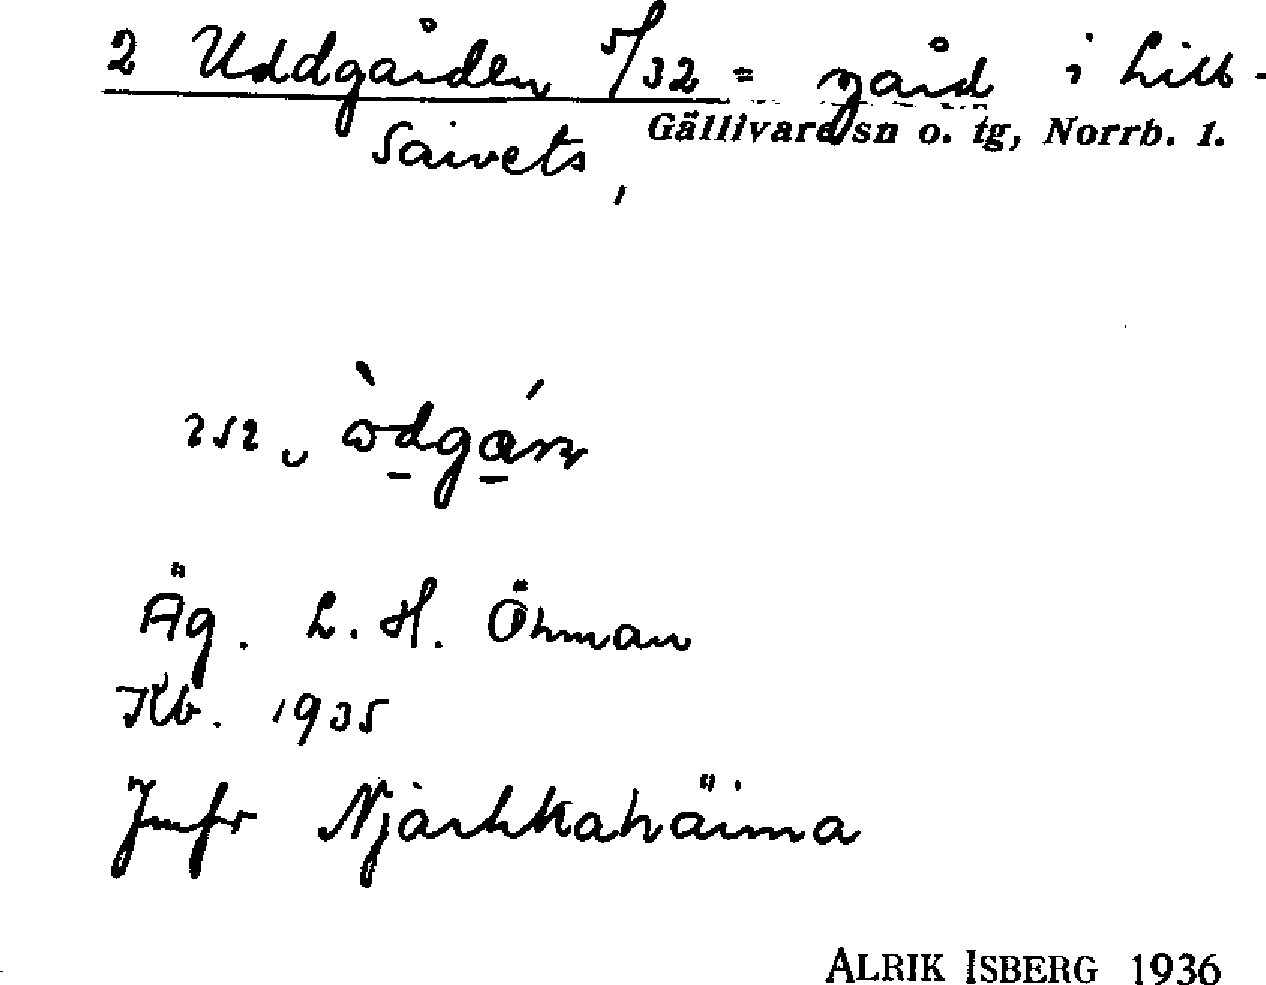 2 Uddgården 5/32 = gård i Lill-
Gällivare sn o. tg, Norrb. l.
Saivets,
252 ὼdgárn
Äg. L. H. Öhman
Kb. 1935
Jmfr Njarkkahäima
ALRIK ISBERG 1936